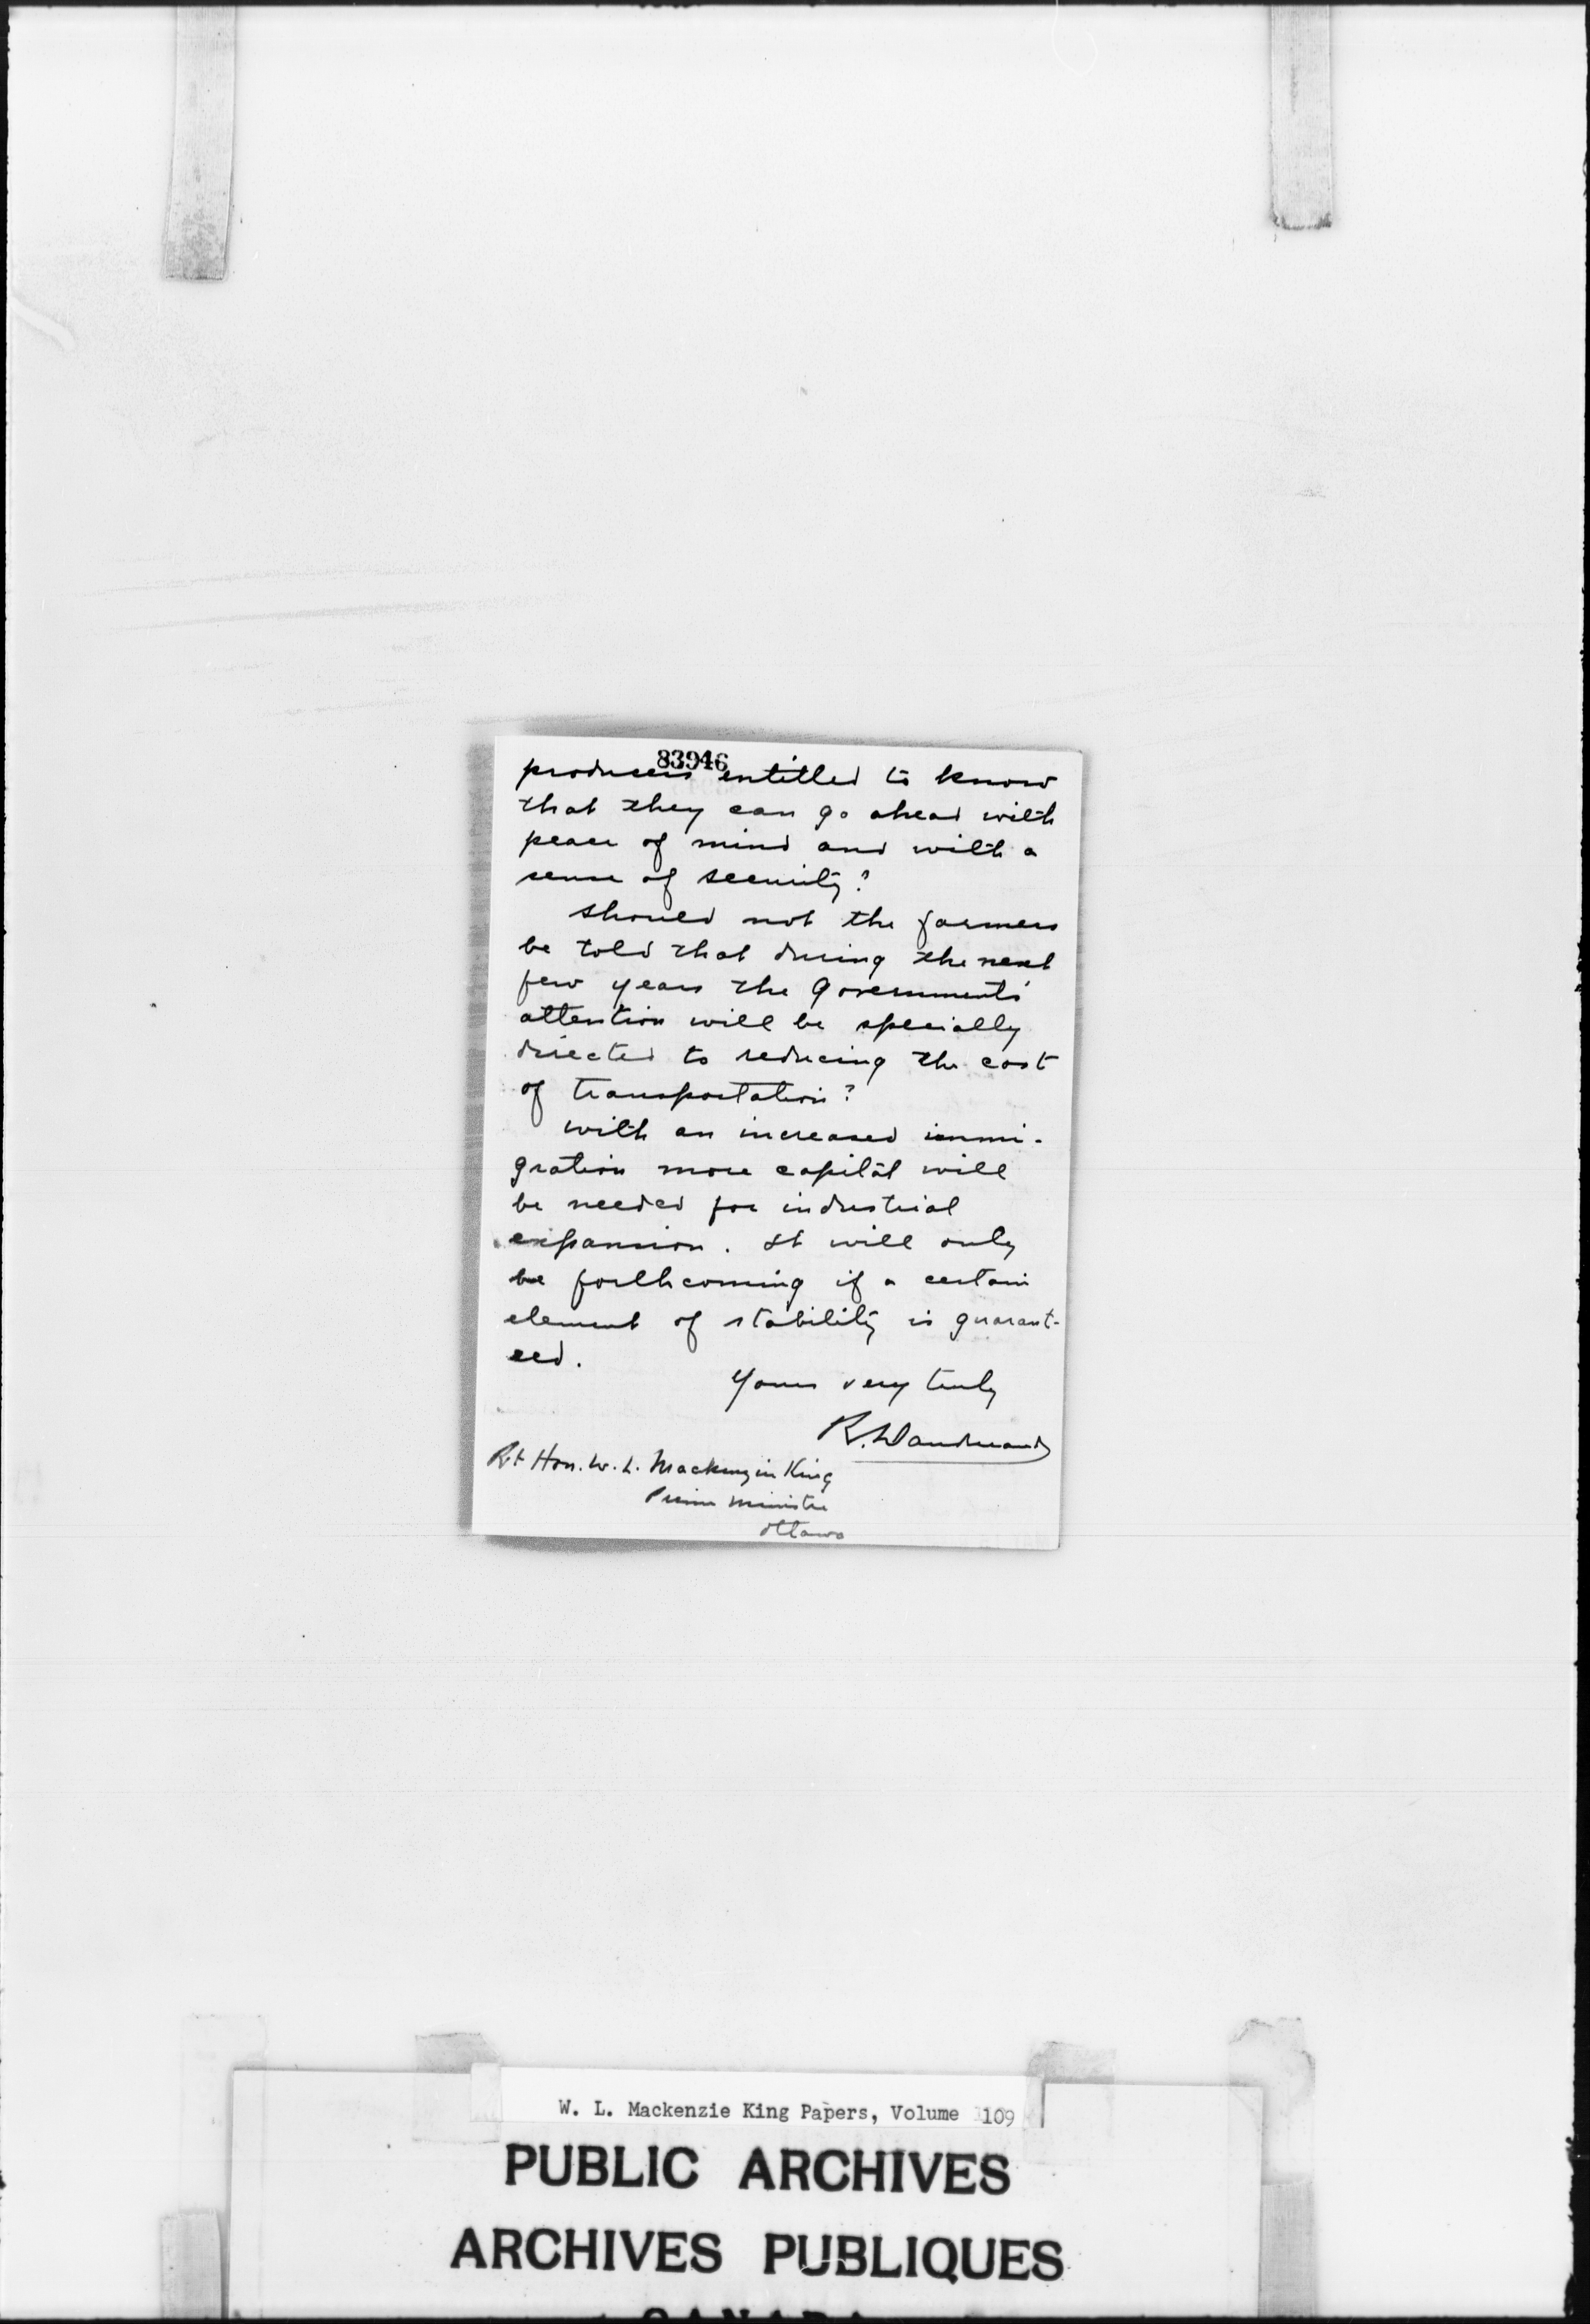 83946
producers entitled to know
that they can go ahead with
peace of mind and with a
sense of security?
Should not the farmers
be told that during the next
few years the Governments'
attention will be specially
directed to reducing the cost
of transportation?
With an increased immi-
gration more capital will
be needed for industrial
expansion. It will only
be forthcoming if a certain
element of stability is guarant-
eed.
Yours very truly
R. Dandurand
Rt Hon. W. L. Mackenzie King
Prime Minister
Ottawa
W. L. Mackenzie King Papers, Volume 109
PUBLIC ARCHIVES
ARCHIVES PUBLIQUES
CANADA